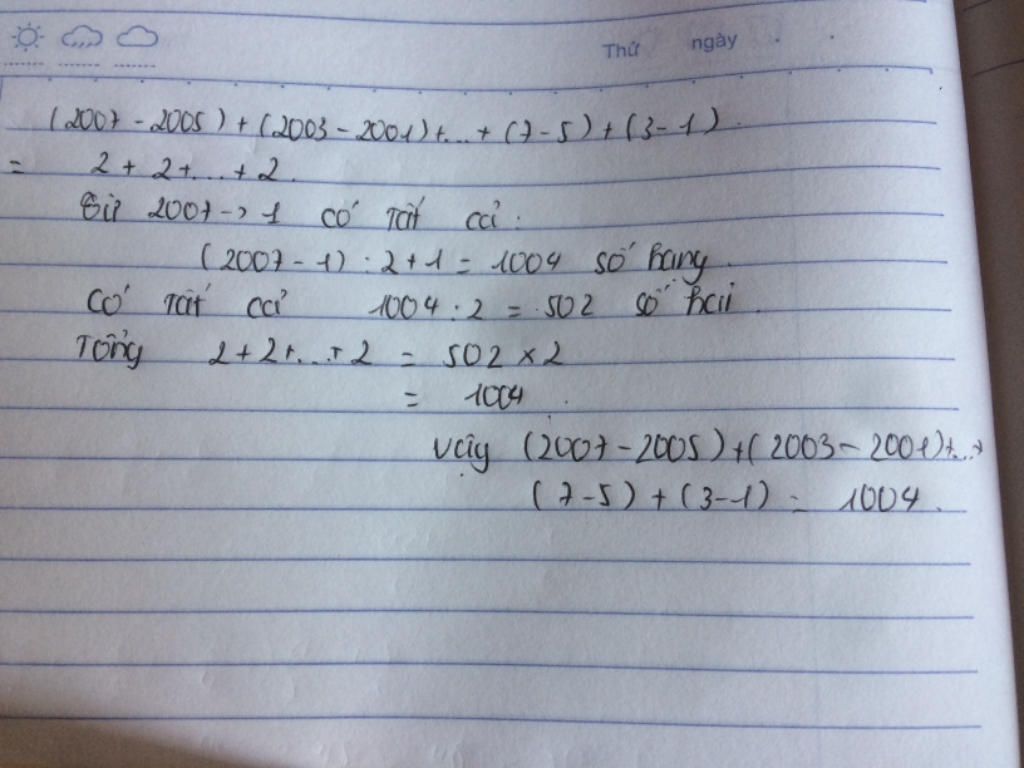 Thứ ngày
(2007 - 2005) + (2003 - 2001) + ... + (7 - 5) + (3 - 1)
= 2 + 2 + ... + 2.
Từ 2007 -> 1 có tất cả :
(2007 - 1) : 2 + 1 = 1004 số hạng.
Có tất cả 1004 : 2 = 502 số hai.
Tổng 2 + 2 + ... + 2 = 502 x 2
= 1004.
Vậy (2007 - 2005) + (2003 - 2001) + ... +
(7 - 5) + (3 - 1) = 1004.